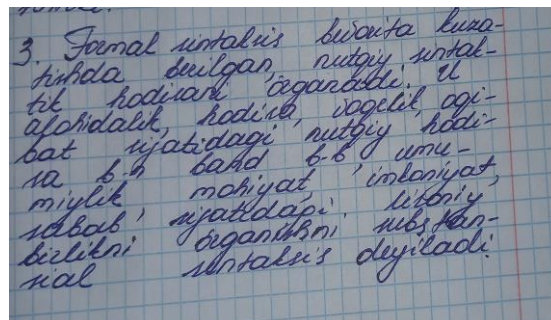 3. Formal sintaksis bevosita kuza-
tishda berilgan, nutqiy sintak-
tik hodisani o'rganadi. U
alohidalik, hodisa, voqelik, oqi-
bat sifatidagi nutqiy hodi-
sa b-n band b-b, umu-
miylik, mohiyat, imkoniyat,
sabab, sifatidagi lisoniy
birlikni o'rganishni substan-
sial sintaksis deyiladi.